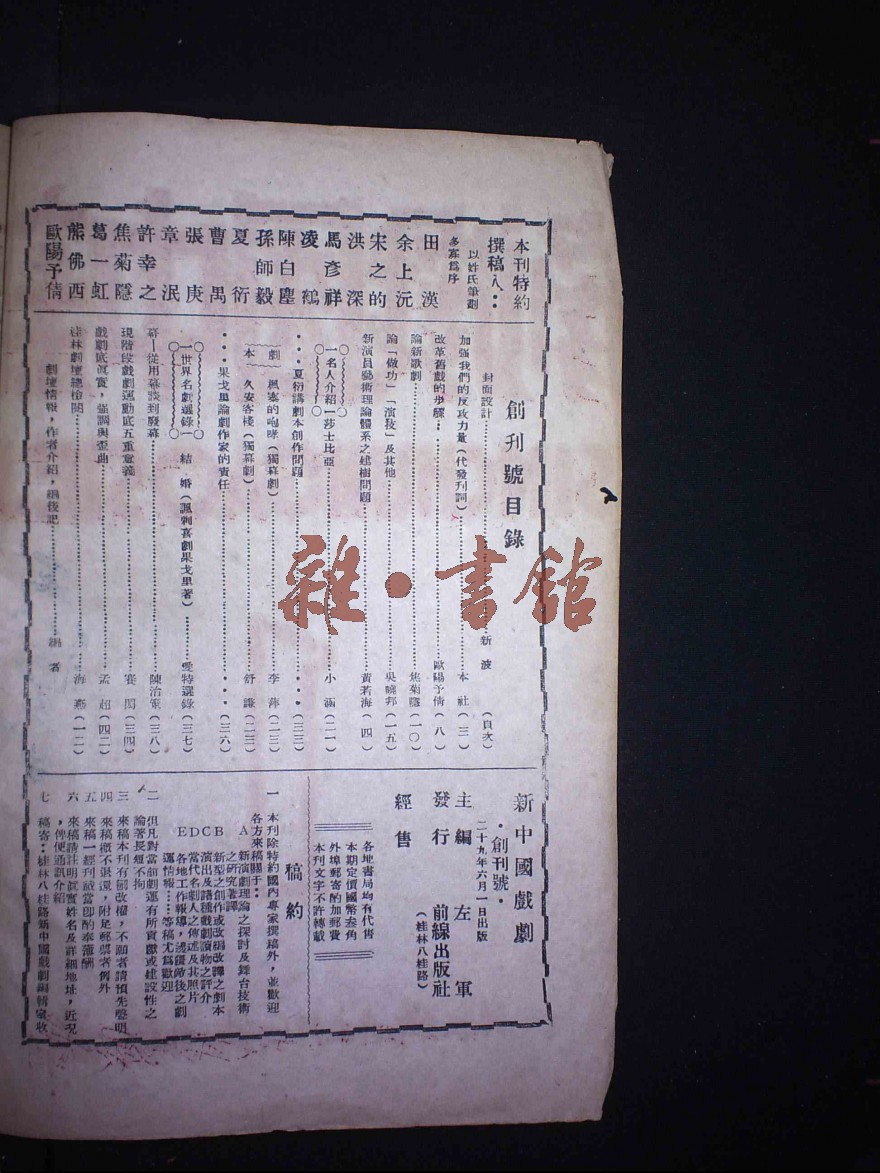 本刊特約
撰稿人：
以姓氏筆劃
多寡爲序
田漢
余上沅
宋之的
洪深
馬彥祥
凌鶴
陳白塵
孫師毅
夏衍
曹禺
張庚
章泯
許幸之
焦菊隱
葛一虹
熊佛西
歐陽予倩
創刊號目錄
封面設計……新波（頁次）
加强我們的反攻力量（代發刊詞）……本社（三）
改革舊戲的步驟……歐陽予倩（八）
論新歌劇……焦菊隱（一〇）
論「做功」「演技」及其他……吳曉邦（一五）
新演員藝術理論體系之建樹問題……黃若海（四）
一名人介紹一莎士比亞……小涵（二一）
夏衍講劇本創作問題……（三三）
劇本
楓塞的咆哮（獨幕劇）……李萍（二三）
久安客棧（獨幕劇）……舒謙（二三）
果戈里論劇作家的責任……（三六）
一世界名劇選錄一 結婚（諷刺喜劇果戈里著）……愛特選錄（三七）
幕—從用幕談到廢幕……陳治策（三八）
現階段戲劇運動底五重意義……賽閎（三四）
戲劇底眞實，强調與歪曲……孟超（四二）
桂林劇壇總檢閱……海燕（一二）
劇壇情報，作者介紹，編後記……編者
新中國戲劇
·創刊號·
二十九年六月一日出版
主編 左軍
發行 前線出版社
（桂林八桂路）
經售
各地書局均有代售
本期定價國幣叁角
外埠郵寄酌加郵費
本刊文字不許轉載
稿約
一 本刊除特約國內專家撰稿外，並歡迎
各方來稿關于：
A 新演劇理論之探討及舞台技術
之研究著譯
B 新型之創作或改編改譯之劇本
C 演出及各種戲劇讀物之評介
D 當代名劇人之傳述及其照片
E 各地工作報導，淺後之劇
運情報……等稿尤爲歡迎
二 但凡對當前劇運有所貢獻或建設性之
論著長短不拘
三 來稿本刊有删改權，不願者請預先聲明
四 來稿概不退還，附足郵票者例外
五 來稿一經刊載當卽酌奉薄酬
六 來稿請注明眞實姓名及詳細地址，近況
，俾便通訊介紹
七 稿寄：桂林八桂路新中國戲劇編輯室收
雜·書館